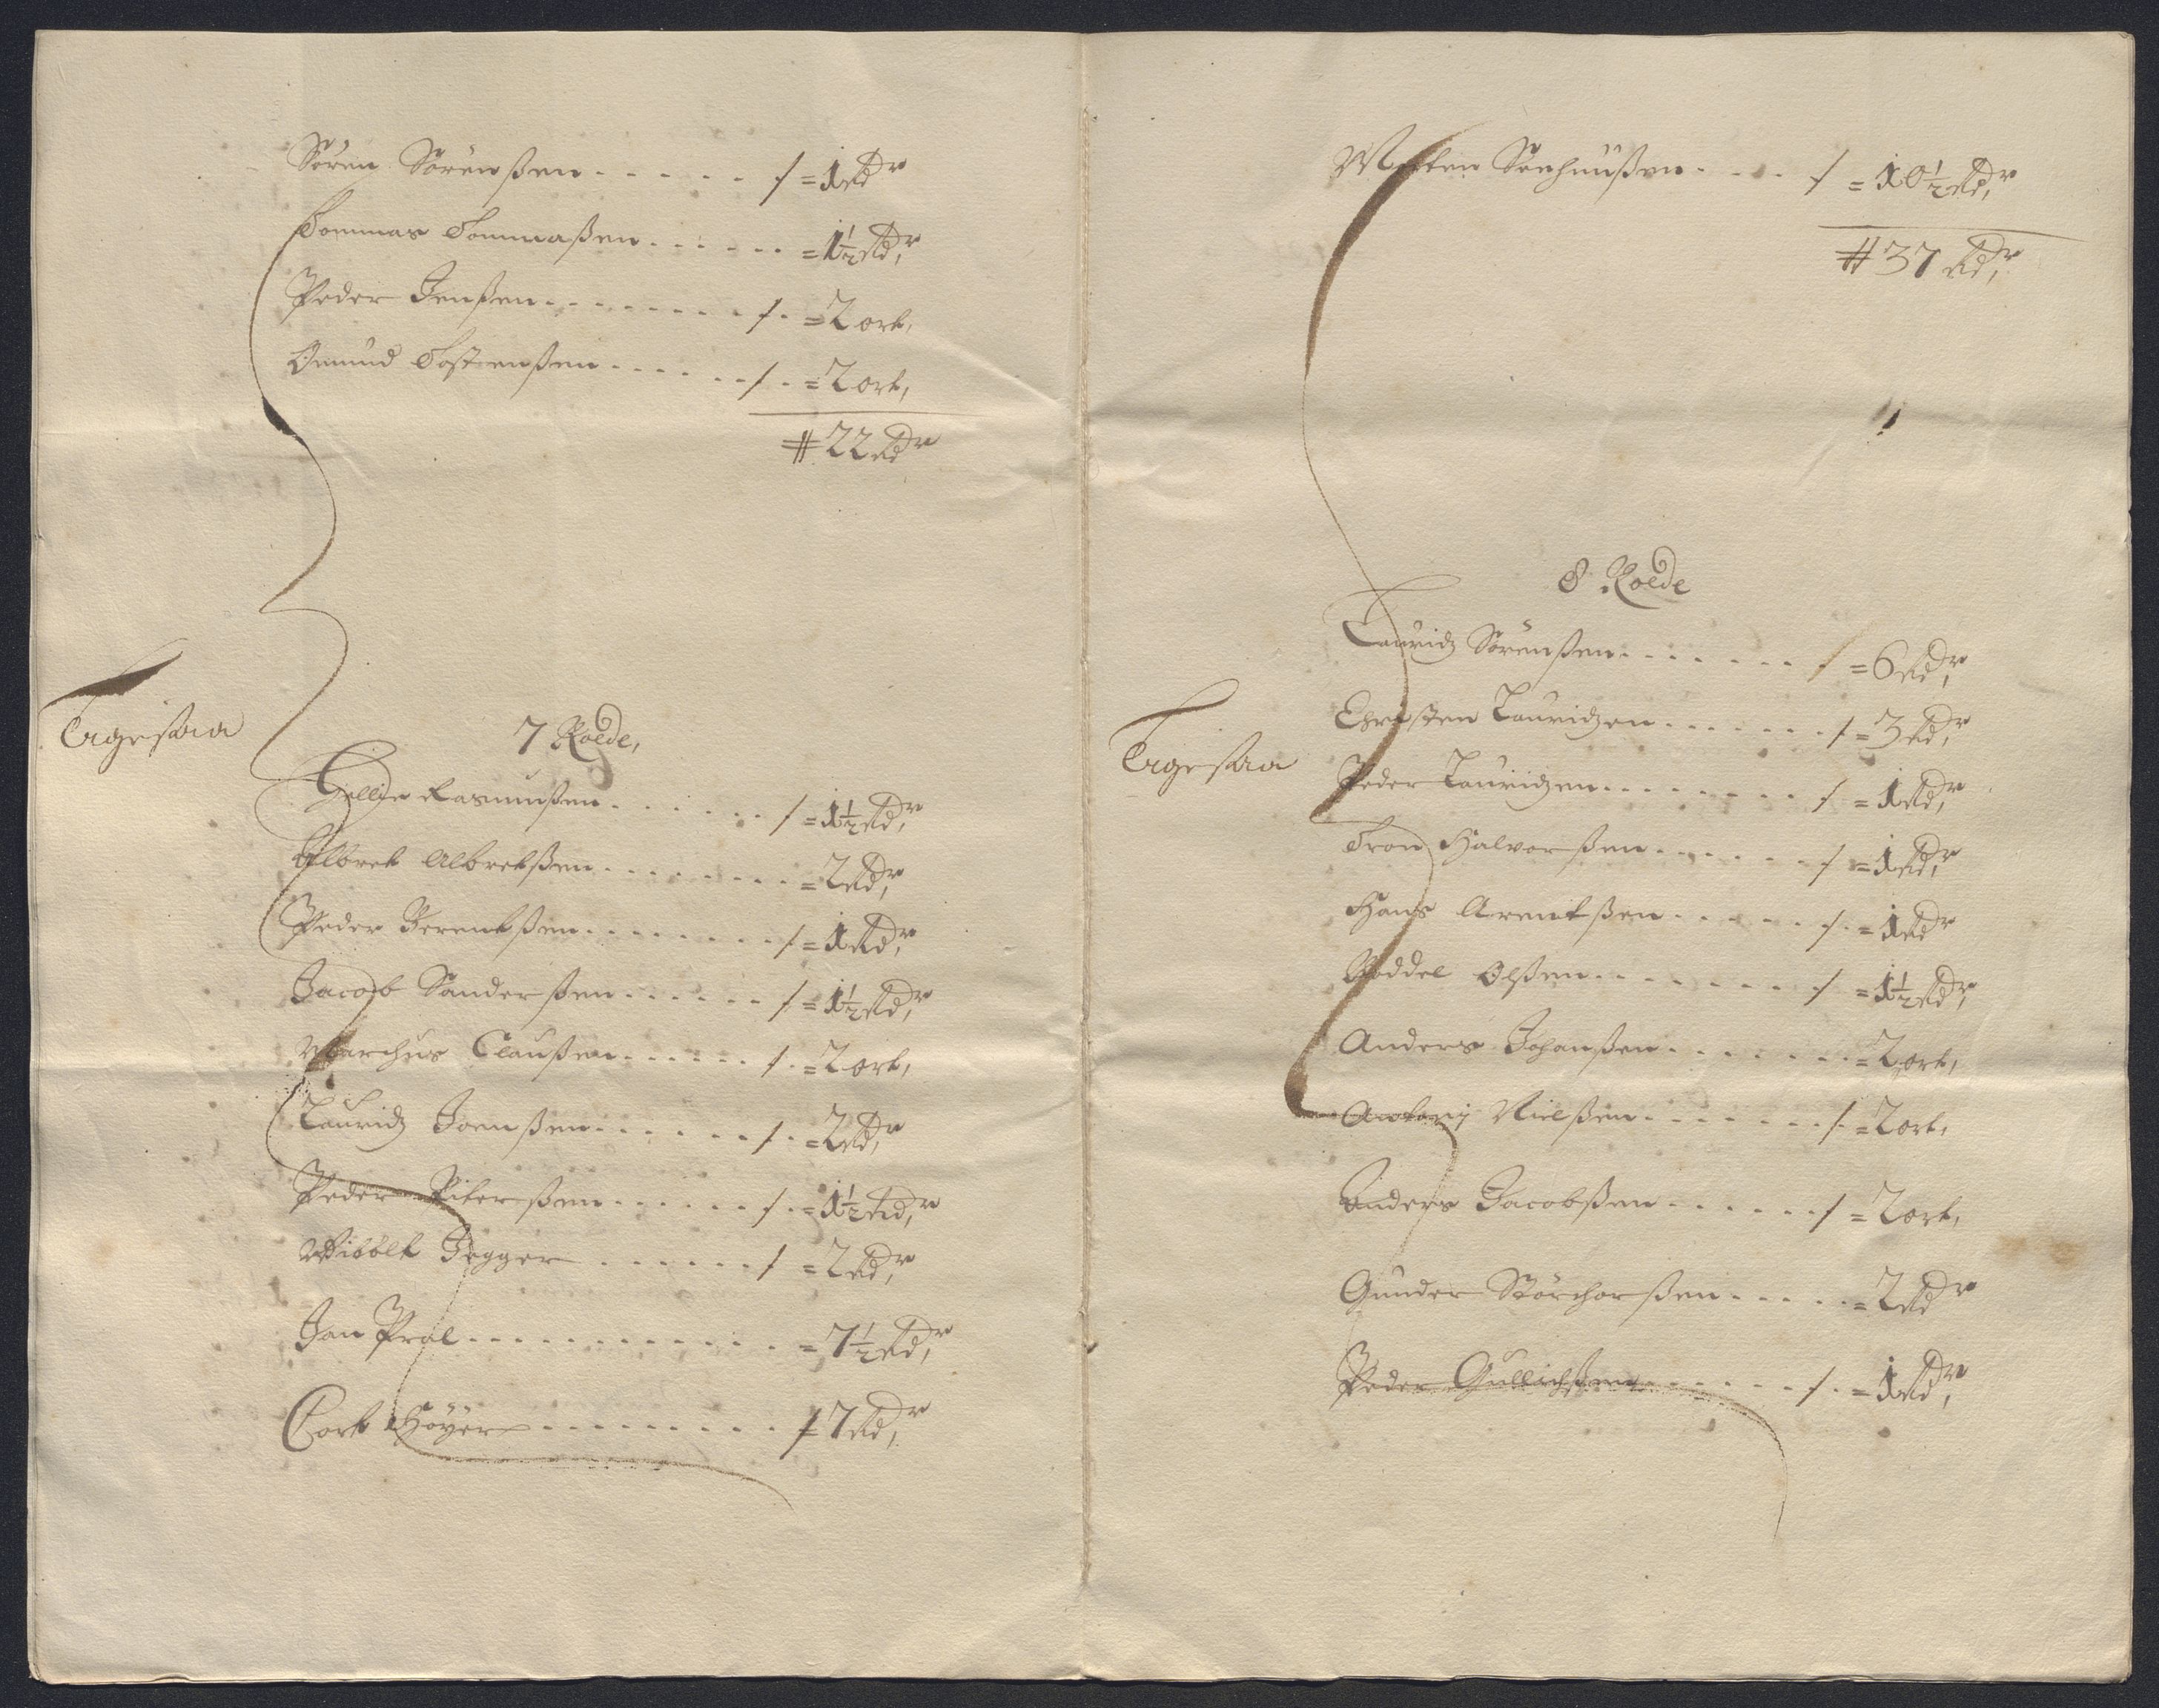 Søren Sørenßen - - - - - - / = 1 Rdr
Tommas Tommaßen - - - - - - = 1½ Rdr,
Peder Jenßen - - - - - - - - /. = 2 ort,
Omund Tostenßen - - - - - - /. = 2 ort,
# 22 Rdr
Ligesaa
7 Roede,
Gellge Rasmußen - - - - - - / = 1½ Rdr,
Albret Albretßen - - - - - - - - = 2 Rdr,
Peder Berentßen - - - - - - - - / = 1 Rdr,
Jacob Sanderßen - - - - - - / = 1½ Rdr,
Marchus Claußen - - - - - - /. = 2 ort,
Lauridz Joenßen - - - - - - /. = 2 Rdr,
Peder Piterßen - - - - - - /. = 1½ Rdr,
Wibolt Jegger - - - - - - / = 2 Rdr,
Jan Pral - - - - - - - - - - - = 7½ Rdr,
Cort Høyer - - - - - - - - - / = 7 Rdr,
Morten Seehuußen - - - - / = 10½ Rdr,
# 37 Rdr,
8 Roede
Lauridz Sørenßen - - - - - - - / = 6 Rdr,
Ligesaa
Christen Lauridzen - - - - - - - / = 3 Rdr,
Peder Lauridzen - - - - - - - - / = 1 Rdr,
Tron Halvorßen - - - - - - - / = 1 Rdr,
Hans Arentßen - - - - - - /. = 1 Rdr
Noddel Olßen - - - - - - - - / = 1½ Rdr,
Anders Johanßen - - - - - - - = 2 ort,
Antonj Nielßen - - - - - - - /. = 2 ort,
Anders Jacobßen - - - - - - / = 2 ort,
Gunder Storchorßen - - - - - = 2 Rdr
Peder Gullichßen - - - - - - /. = 1 Rdr,